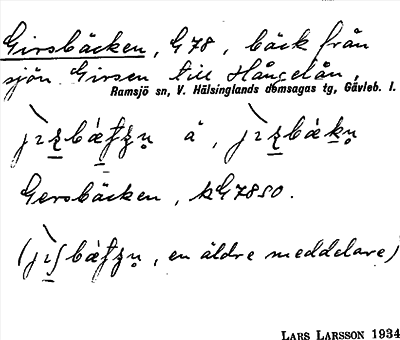 Girsbäcken, G78, bäck från
sjön Girsen till Hångelån,
Ramsjö sn, V. Hälsinglands domsagas tg, Gävleb. l.
å,
Gersbäcken, kG7850.
, en äldre meddelare)
LARS LARSSON 1934